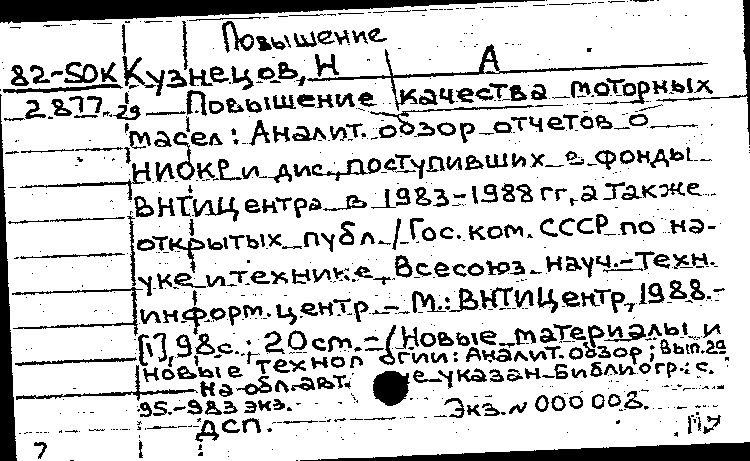 Повышение
82-SOK Кузнецов, Н А
2877.29 Повышение качества моторных
масел: Аналит. обзор отчетов о
НИОКР и дис., поступивших в фонды
ВНТИЦентра в 1983-1988 гг, а также
открытых публ. / Гос. ком. СССР по на-
уке и технике, Всесоюз. науч.-техн.
информ. центр. - М.: ВНТИЦентр, 1988. -
[1], 98 с.; 20 cm. - (Новые материалы и
новые технологии: Аналит. обзор; Вып. 29
На обл. авт. не указан. Библиогр.: с.
95-98 3 экз.
Экз. № 000 008.
ДСП.
7